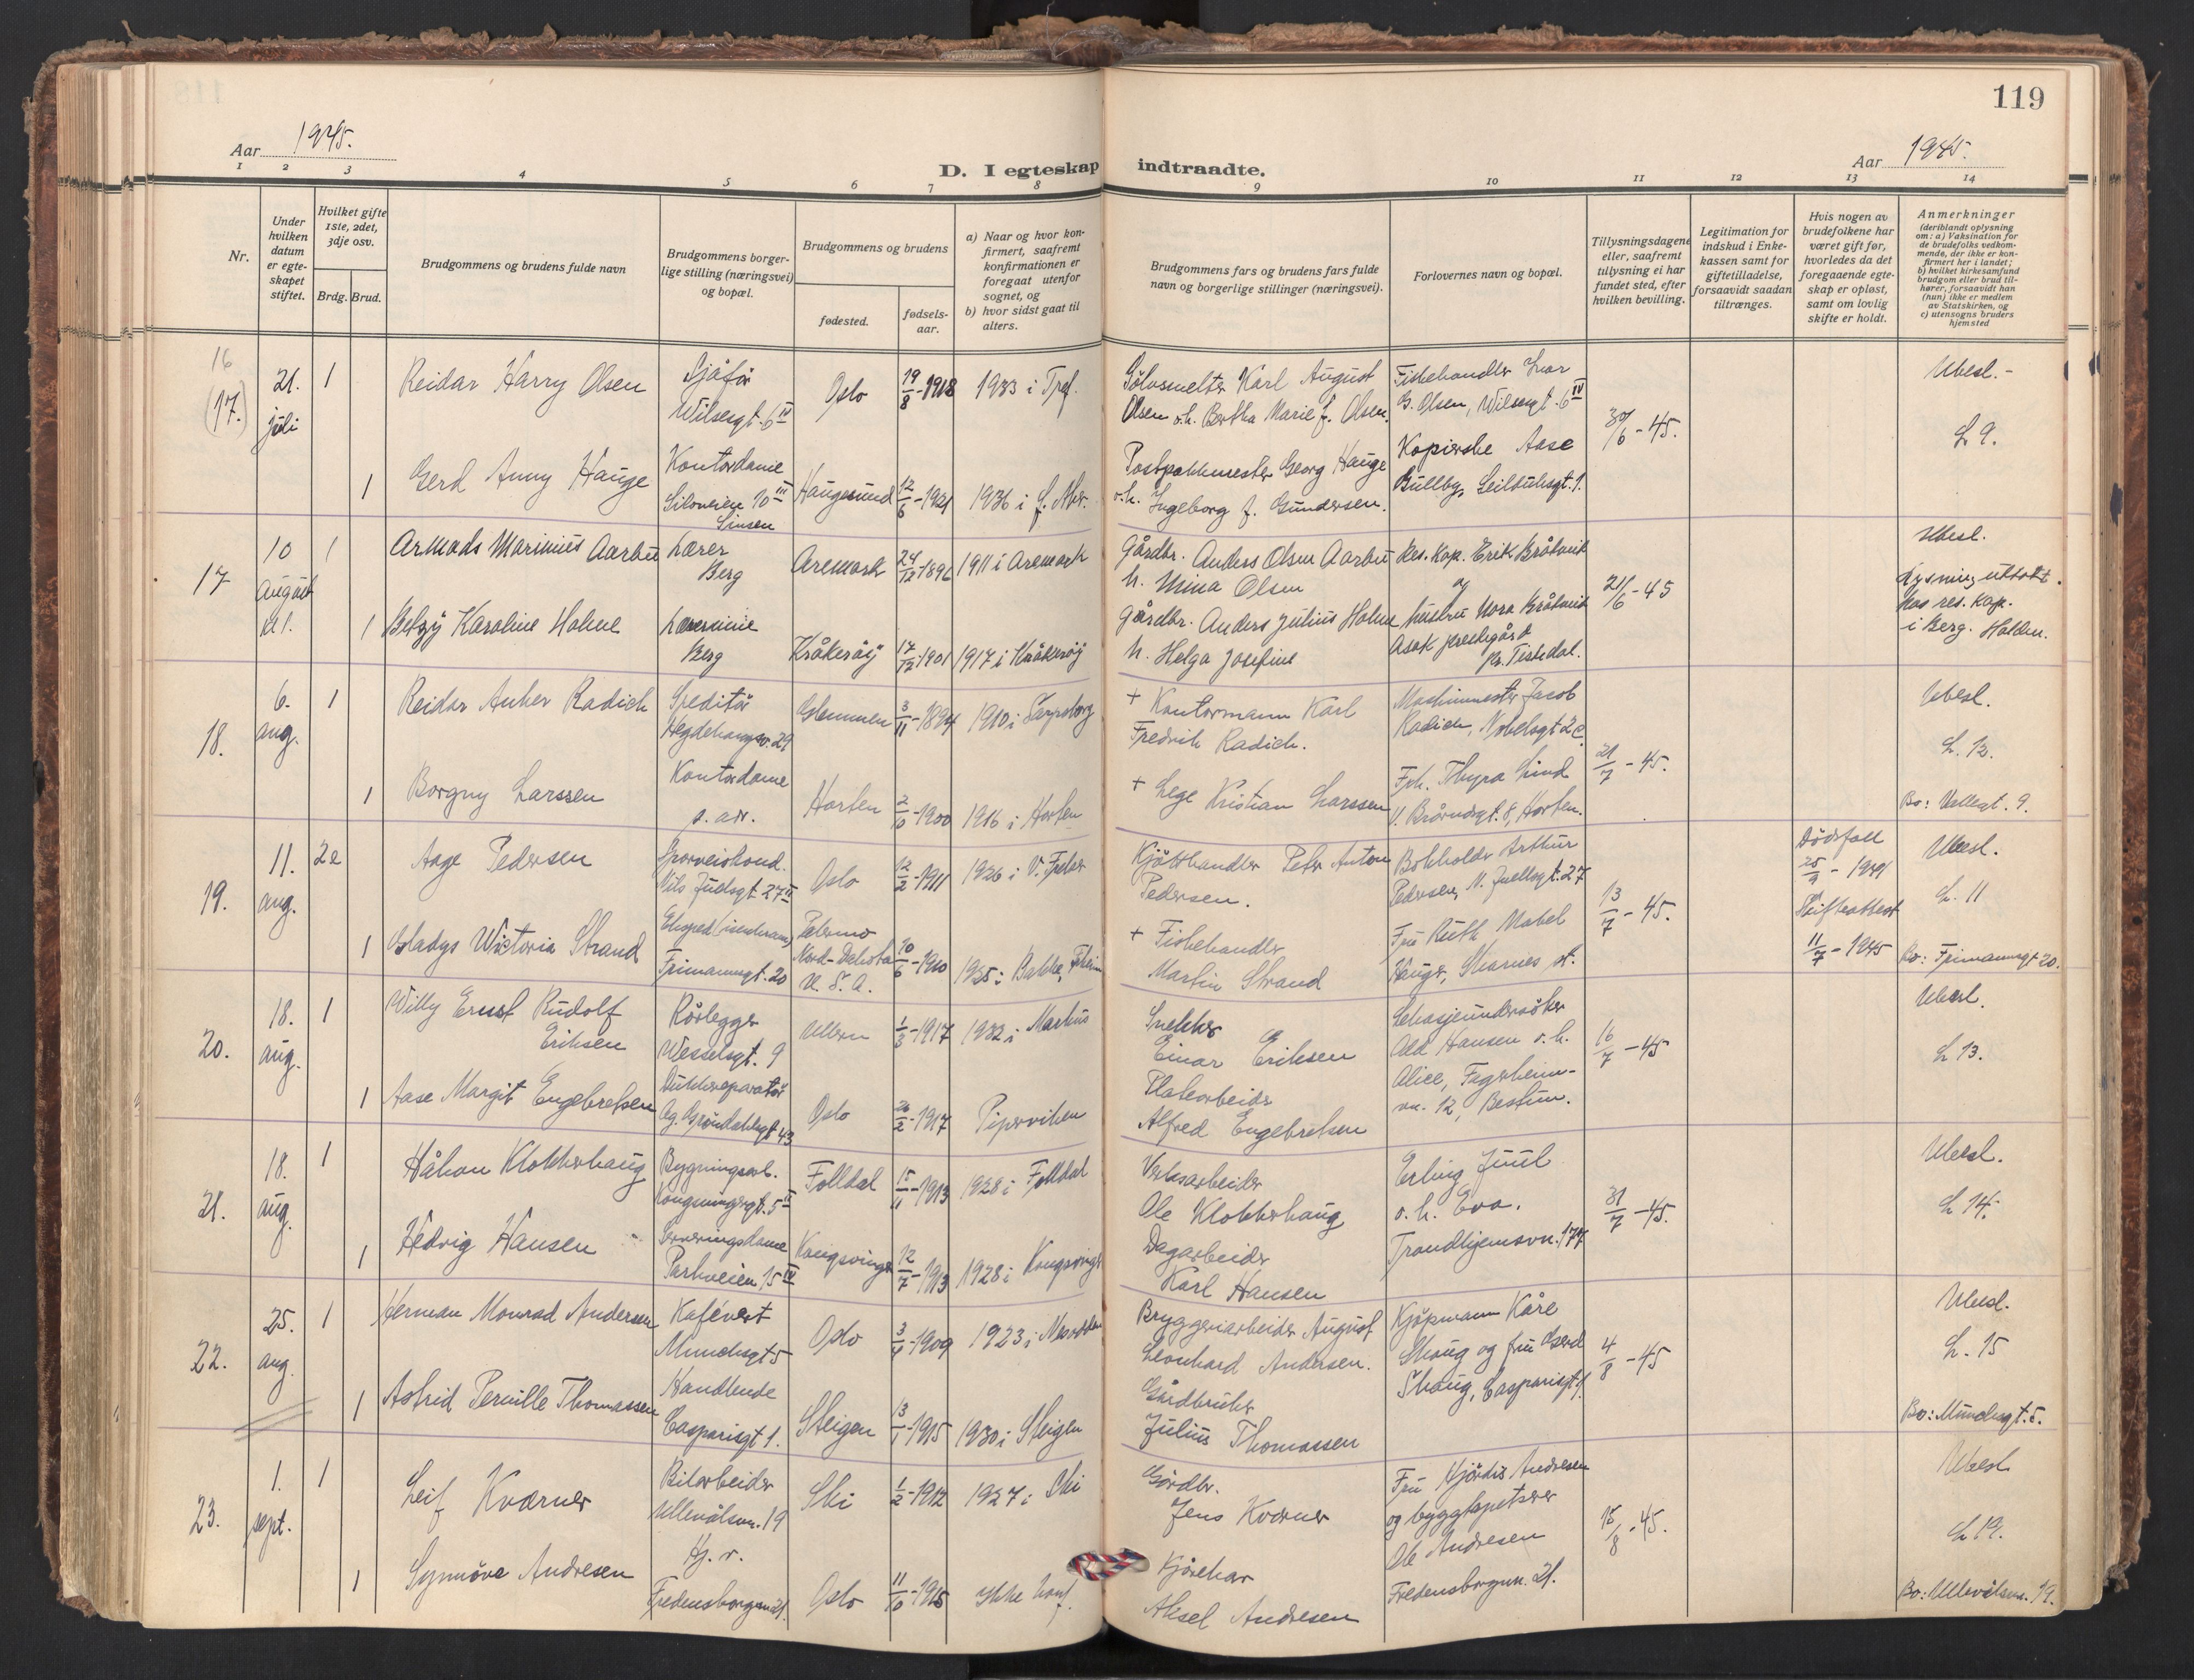 119
Aar 1945.
D. I egteskap indtraadte.
Aar 1945.
1 2 3 4 5 6 7 8 9 10 11 12 13 14
Nr.
Under hvilken datum er egte-skapet stiftet.
Hvilket gifte 1ste, 2det, 3dje osv.
Brdg. Brud.
Brudgommens og brudens fulde navn
Brudgommens borger-lige stilling (næringsvei) og bopæl.
Brudgommens og brudens
fødested.
fødsels-aar.
a) Naar og hvor kon-firmert, saafremt konfirmationen er foregaat utenfor sognet, og
b) hvor sidst gaat til alters.
Brudgommens fars og brudens fars fulde navn og borgerlige stillinger (næringsvei).
Forlovernes navn og bopæl.
Tillysningsdagene eller, saafremt tillysning ei har fundet sted, efter hvilken bevilling.
Legitimation for indskud i Enke-kassen samt for giftetilladelse, forsaavidt saadan tiltrænges.
Hvis nogen av brudefolkene har været gift før, hvorledes da det foregaaende egte-skap er opløst, samt om lovlig skifte er holdt.
Anmerkninger
(deriblandt oplysning om: a) Vaksination for de brudefolks vedkom-mende, der ikke er kon-firmert her i landet;
b) hvilket kirkesamfund brudgom eller brud til-hører, forsaavidt han (hun) ikke er medlem av Statskirken, og
c) utensogns bruders hjemsted
16
(17.)
21. juli
1
Reidar Harry Olsen
Sjåfør
Wilsesgt. 6 IV
Oslo
19/8-1918
1933 i Tref.
Sølvsmelter Karl August
Olsen o.h. Bertha Marie f. Olsen.
Fiskehandler Ivar
G. Olsen, Wilsesgt. 6 IV
30/6-45.
Ubesl.-
L 9.
1
Gerd Anny Hauge
Kontordame
Siloveien 10 III
Sinsen
Haugesund
12/6-1921
1936 i G. Aker.
Postpakkmester Georg Hauge
o.h. Ingeborg f. Gundersen.
Kopierske Aase
Bullby, Seilduksgt. 1.
17
10 august
kl 1.
1
Armods Marinius Aarbu
Lærer
Berg
Aremark
24/12-1896
1911 i Aremark
Gårdbr. Anders Olsen Aarbu
h. Mina Olsen
Res. Kap. Erik Bråtveit
og
hustru Nora Bråtveit
Asak prestegård
pr. Tistedal.
21/6-45
Ubesl.
Lysning uttatt
hos res. kap.
i Berg. Halden.
1
Betzy Karoline Holme
Lærerinne
Berg
Kråkerøy
17/12-1901
1917 i Kråkerøy
Gårdbr. Anders Julius Holme
h. Helga Josefine
18.
6. aug.
1
Reidar Anker Radich
Speditør
Hegdehaugsv. 29
Glemmen
3/11-1894
1910 i Sarpsborg
+ Kontormann Karl
Fredrik Radich.
Maskinmester Jacob
Radich, Nobelsgt 2c.
21/7-45.
Ubesl.
L. 12.
Bo: Vallegt. 9.
1
Borgny Larssen
Kontordame
s. adr.
Horten
2/10-1900
1916 i Horten
+ Lege Kristian Larssen
Frk. Thyra Lind
19.
11. aug.
2e
Aage Pedersen
Sporveiskond.
Nils Juelsgt. 27 II
Oslo
12/2-1911
1926 i V. Frelser
Kjøtthandler Peter Anton
Pedersen.
Bokholder Arthur
Pedersen, N. Juelsgt. 27
13/7-45.
Dødsfall
25/9-1941
Skifteattest
11/7-1945
Ubesl.
L. 11
Bo: Frimannsgt 20.
1
Gladys Wictoria Strand
Frimannsgt. 20
Palermo
Nord-Dakota
U.S.A.
10/6-1910
1925 i Bakke, Tr.heim
+ Fiskehandler
Martin Strand
Fru Ruth Mabel
Hauge, Skarnes st.
20.
18. aug.
1
Willy Ernst Rudolf
Eriksen
Rørlegger
Wesselsgt. 9
Ullern
1/3-1917
1932 i Markus
Snekker
Einar Eriksen
Ald Hansen o.h.
Alice, Fagerheim-
vn. 12, Bestum.
16/7-45
Ubesl.
L 13.
1
Aase Margit Engebretsen
Dukkreparatør
Ag. Grøndahlsgt 43
Oslo
26/2-1917
Piperviken
Platearbeider
Alfred Engebretsen
21.
18. aug.
1
Håkon Klokkerhaug
Bygningsarb.
Kongsvingergt. 5 II
Folldal
15/11-1913
1928 i Folldal
Verksarbeider
Ole Klokkerhaug
Erling Juul
o.h. Eva.
Trondhjemsvn. 177
31/7-45.
Ubesl.
L 14.
1
Hedvig Hansen
Serveringsdame
Parkveien 15 IV
Kongsvinger
12/7-1913
1928 i Kongsvinger
Dagarbeider
Karl Hansen
22.
25. aug.
1
Herman Monrad Andersen
Kafévert
Munchsgt 5
Oslo
1923 i Nesodden
Bryggeriarbeider August
Leonhard Andersen.
Kjøpmann Kåre
Skaug og fru Gerd
Skaug, Casparisgt 1.
4/8-45
Ubesl.
L. 15
Bo: Munchsgt. 5.
1
Astrid Pernille Thomassen
Handlende
Casparisgt 1.
Steigen
13/1-1915
1930 i Steigen
Gårdbruker
Julius Thomassen
23.
1. sept.
1
Leif Kværner
Bilarbeider
Ullevålsvn. 19
Ski
1/2-1912
1927 i Ski
Gårdbr.
Jens Kværner
Fru Hjørdis Andresen
og byggtapetserer
Ole Andresen
Fredensborgvn. 21.
15/8-45.
Ubesl.
L 19.
Bo: Ullevålsvn. 19.
1
Synnøve Andresen
Hj. v.
Fredensborgvn 21.
Oslo
11/10-1915
Ikke konf.
Kjørekar
Aksel Andresen